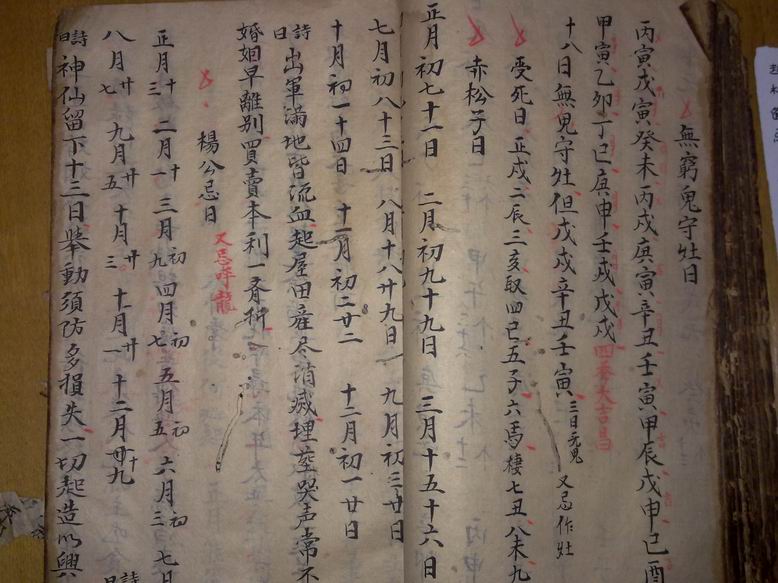 無窮鬼守灶日
丙寅戊寅癸未丙戌庚寅辛丑壬寅甲辰戊申己酉
甲寅乙卯丁巳庚申壬戌戊戌四季大吉昌
十八日無鬼守灶但戊戌辛丑壬寅三日无鬼 又忌作灶
受死日 正戌二辰三亥収四巳五子六馬棲七丑八未九
赤松子日
正月初七十一日 二月初九十九日 三月十五十六日
七月初八十三日 八月十八廿九日 九月初三廿日
十月初一十四日 十一月初二廿二 十二月初一廿日
詩曰 出軍滿地皆流血起屋田産尽消滅埋莹哭声常不
婚姻早離別買賣本利一齊折
楊公忌日 又忌呼龍
正月十三 二月十一 三月初九 四月初七 五月初五 六月初三 七月
八月廿七 九月廿五 十月廿三 十一月廿一 十二月十九
詩曰 神仙留下十三日举動須防多損失一切起造以興